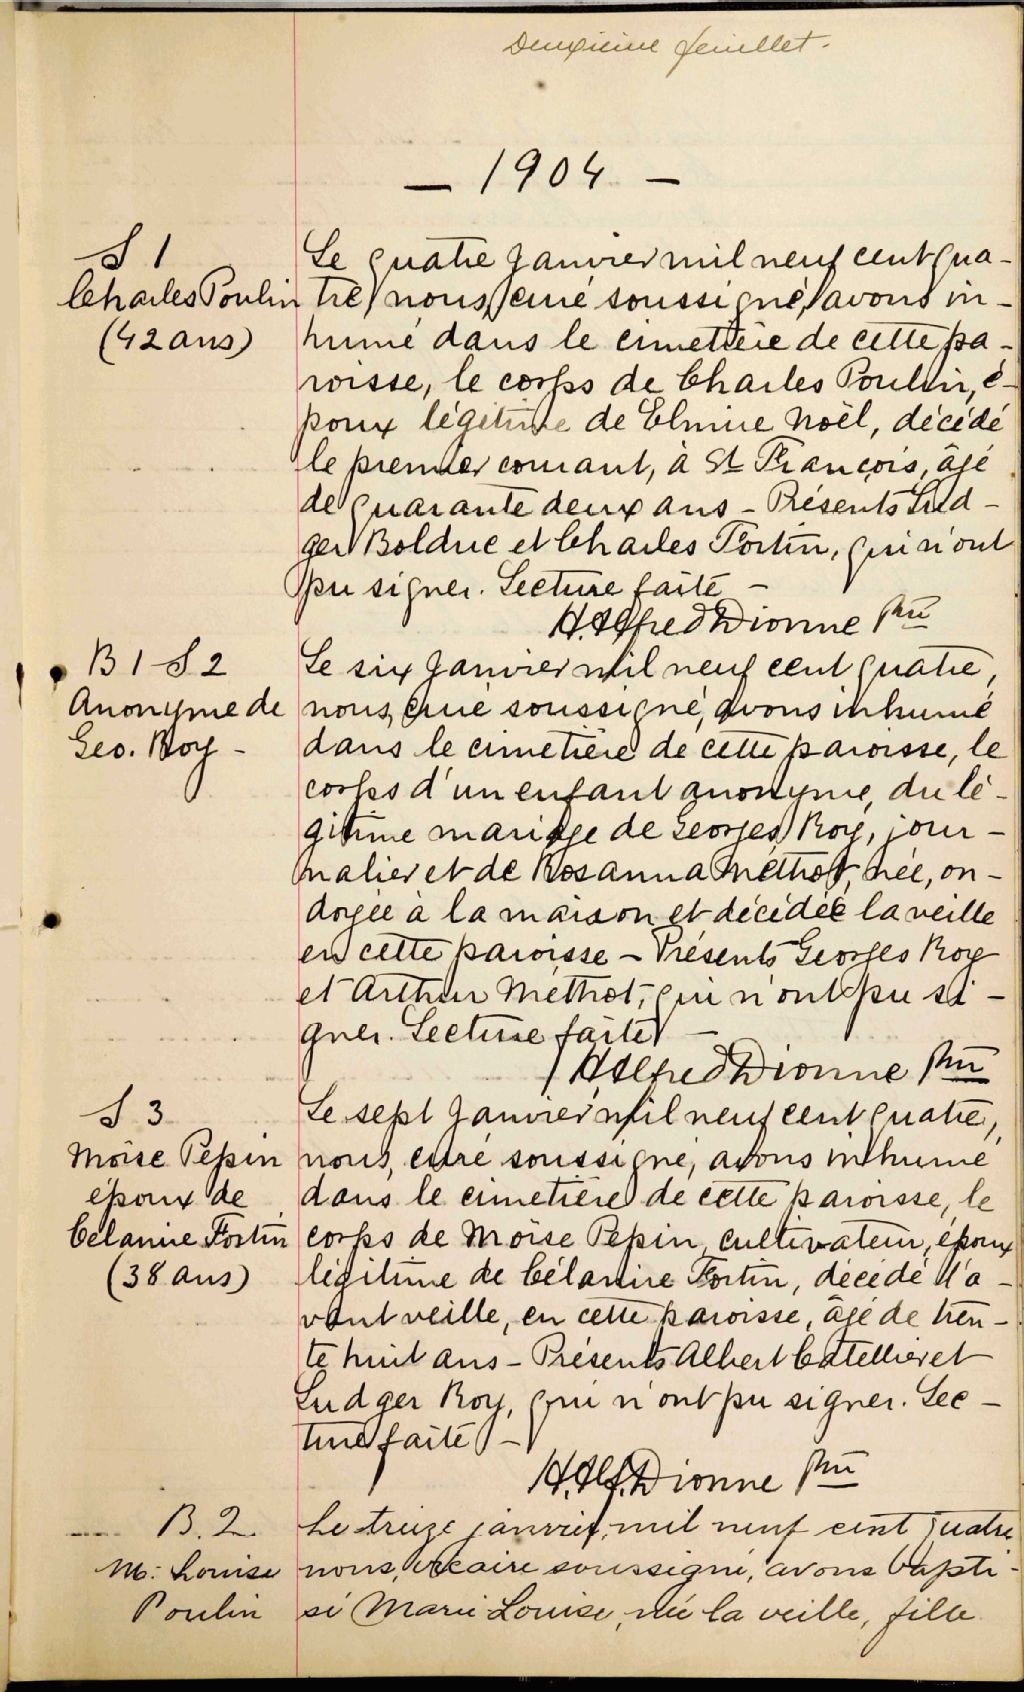 Deuxième feuillet.
— 1904 —
S 1
Charles Poulin
(42 ans)
Le quatre Janvier mil neuf cent qua-
tre, nous, curé soussigné, avons in-
humé dans le cimetière de cette pa-
roisse, le corps de Charles Poulin, é-
poux légitime de Elmire Noël, décédé
le premier courant, à St François, âgé
de quarante deux ans - Présents Lud-
ger Bolduc et Charles Fortin, qui n'ont
pu signer. Lecture faite -
H. Alfred Dionne Ptre
B 1 S 2
Anonyme de
Geo. Roy -
Le six Janvier mil neuf cent quatre,
nous, curé soussigné, avons inhumé
dans le cimetière de cette paroisse, le
corps d'un enfant anonyme, du lé-
gitime mariage de Georges Roy, jour-
nalier et de Rosanna Méthot, née, on-
doyée à la maison et décédée la veille
en cette paroisse - Présents Georges Roy
et Arthur Méthot, qui n'ont pu si-
gner. Lecture faite -
H. Alfred Dionne Ptre
S 3
Moïse Pépin
époux de
Célanire Fortin
(38 ans)
Le sept Janvier mil neuf cent quatre,
nous, curé soussigné, avons inhumé
dans le cimetière de cette paroisse, le
corps de Moïse Pépin, cultivateur, époux
légitime de Célanire Fortin, décédé l'a-
vant veille, en cette paroisse, âgé de tren-
te huit ans - Présents Albert Catellier et
Ludger Roy, qui n'ont pu signer. Lec-
ture faite -
H. Alf. Dionne Ptre
B. 2
M. Louise
Poulin
Le treize janvier, mil neuf cent quatre
nous, vicaire soussigné, avons bapti-
sé Marie Louise, née la veille, fille